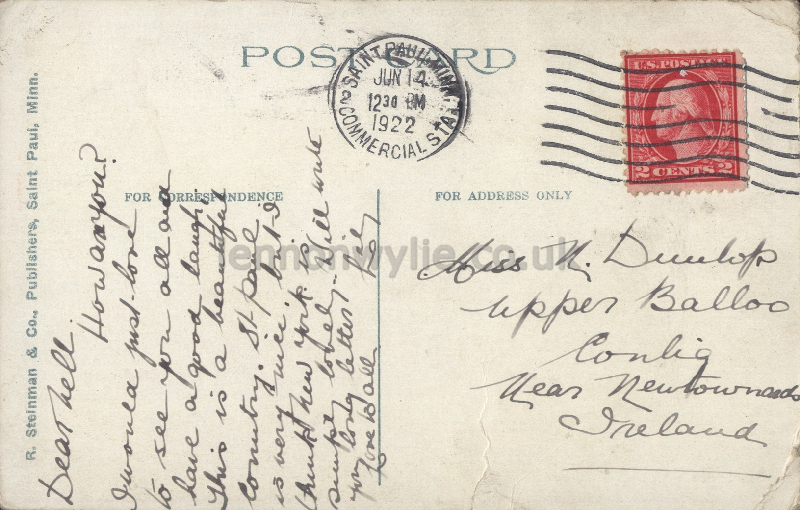 POST CARD
SAINT PAUL, MINN.
JUN 14
12 30 PM
1922
2 COMMERCIAL STA.
U.S. POSTAGE
2 CENTS 2
R. Steinman & Co., Publishers, Saint Paul, Minn.
FOR CORRESPONDENCE
FOR ADDRESS ONLY
Dear Nell
How are you?
I would just love
to see you all and
have a good laugh
This is a beautiful
country. St Paul
is very nice, but I
think New York is
simply lovely. Will write
you long letter. Lily
Love to all
Miss N. Dunlop
Upper Balloo
Conlig
Near Newtownards
Ireland
lennonwylie.co.uk